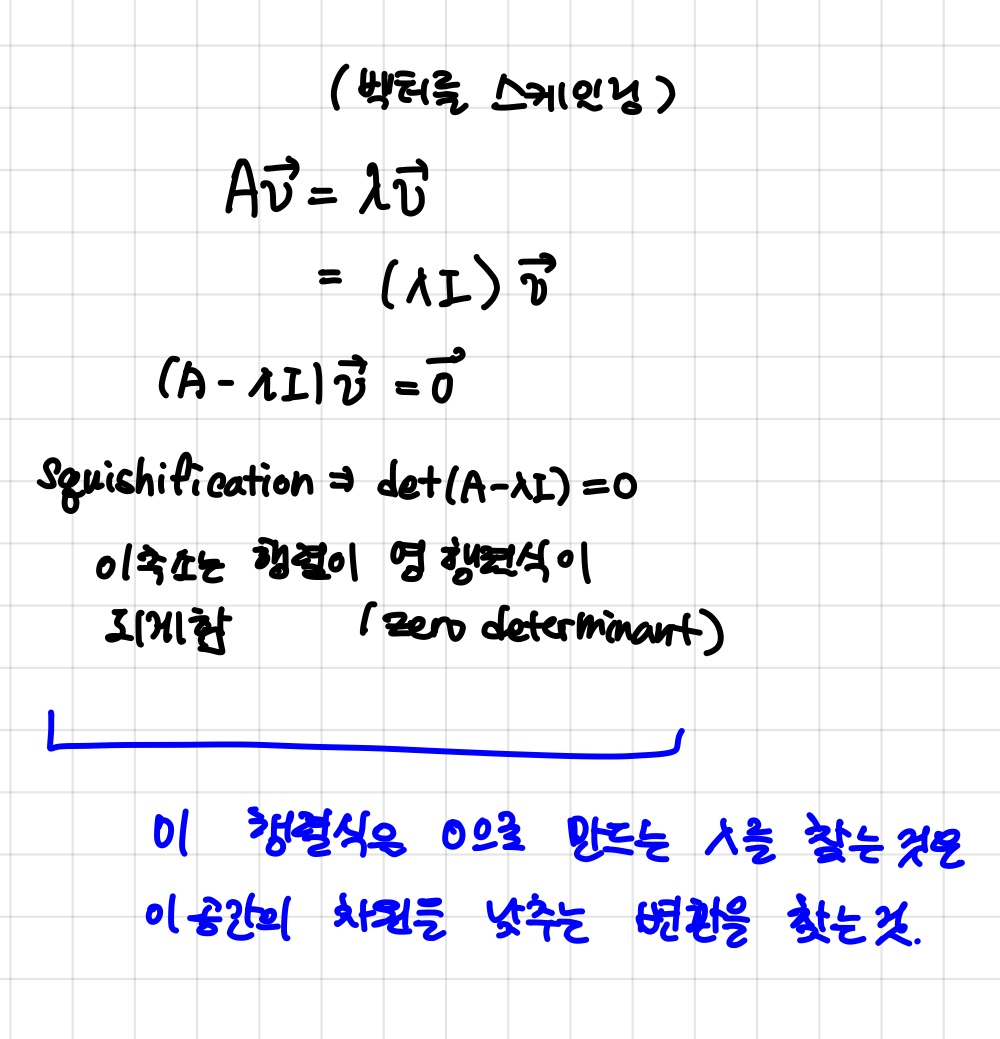 (벡터를 스케일링)
A\vec{v} = λ\vec{v}
= (λI) \vec{v}
(A - λI) \vec{v} = \vec{0}
Squishification ⇒ det(A-λI) = 0
이 축소는 행렬이 영 행렬식이
되게함 (zero determinant)
이 행렬식을 0으로 만드는 λ를 찾는 것은
이 공간의 차원을 낮추는 변환을 찾는 것.